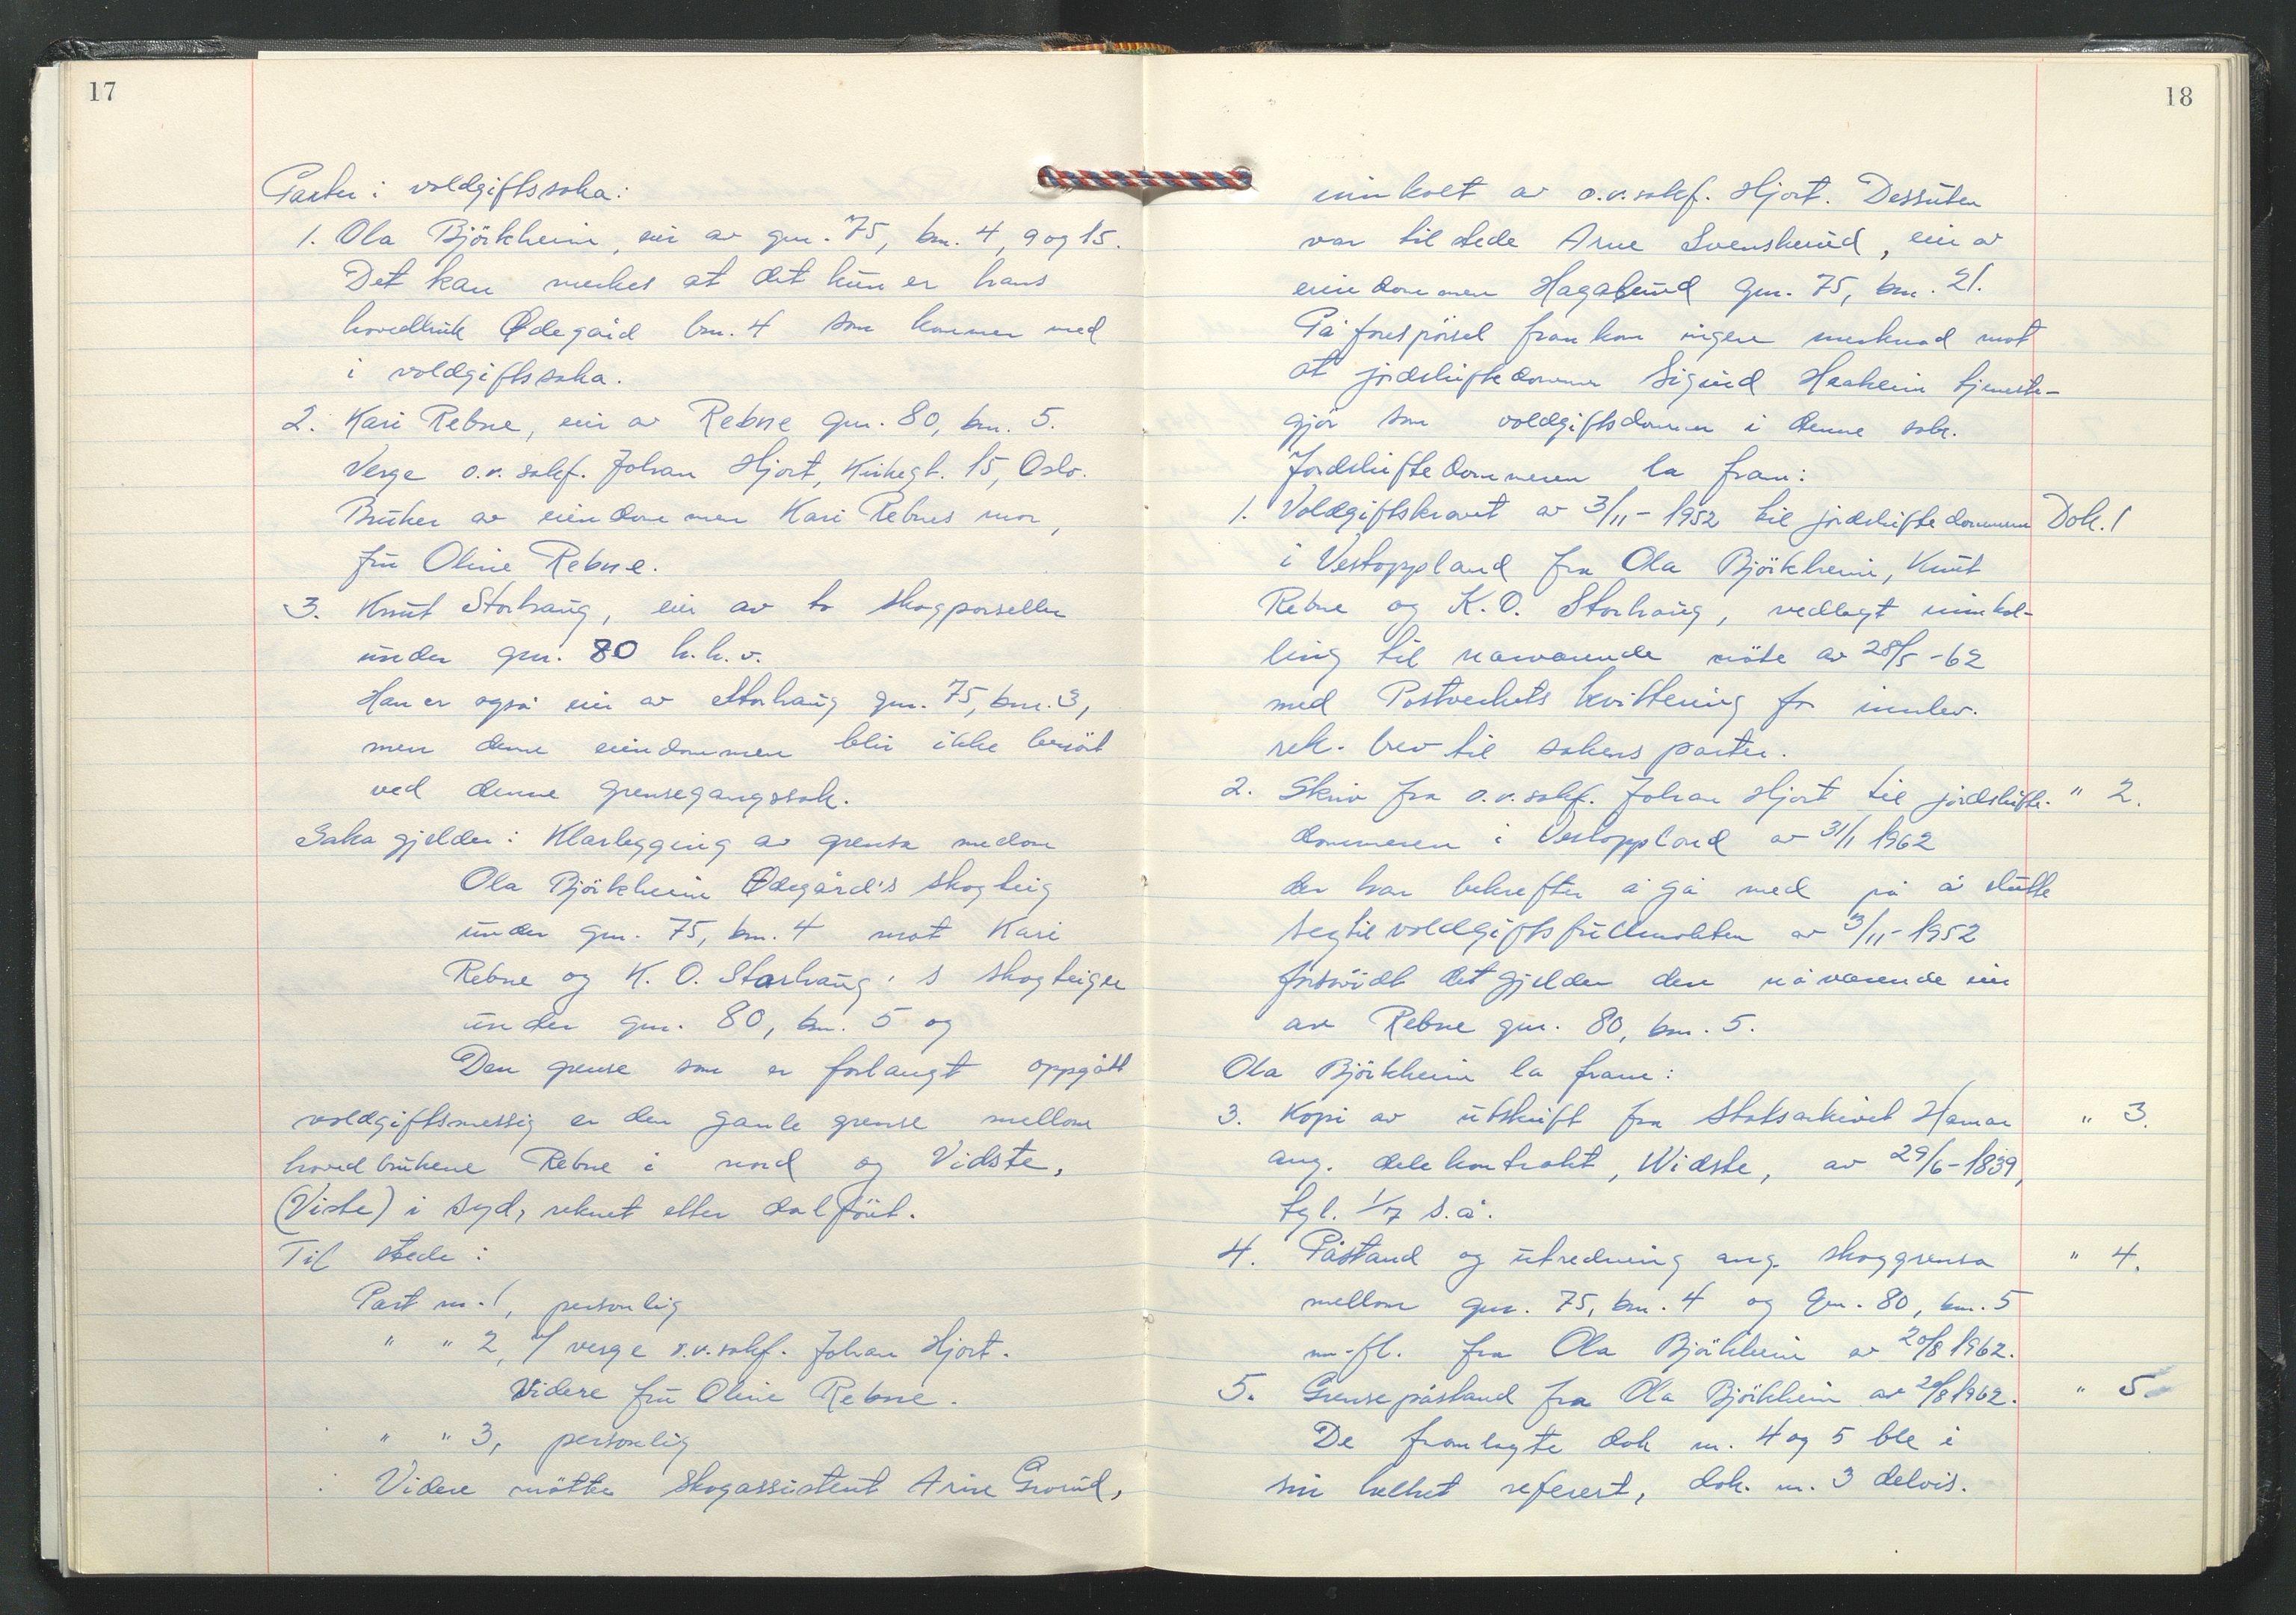 17
Parter i voldgiftssaka:
1. Ola Björkheim, eier av gnr. 75, bnr. 4, 9 og 15.
Det kan merkes at det kun er hans
hovedbruk Ødegård bnr. 4 som kommer med
i voldgiftssaka.
2. Kari Rebne, eier av Rebne gnr. 80, bnr. 5.
Verge o.r.sakf. Johan Hjort, Kirkegt. 15, Oslo.
Bruker av eiendommen Kari Rebnes mor,
fru Oline Rebne.
3. Knut Storhaug, eier av to skogparseller
under gnr. 80 h.h.v.
Han er også eier av Storhaug gnr. 75, bnr. 3,
men denne eiendommen blir ikke berört
ved denne grensegangssak.
Saka gjelder: Klarlegging av grensa mellom
Ola Björkheim Ødegård's skogteig
under gnr. 75, bnr. 4 mot Kari
Rebne og K. O. Storhaug's skogteiger
under gnr. 80, bnr. 5 og
Den grense som er forlangt oppgått
voldgiftsmessig er den gamle grense mellom
hovedbrukene Rebne i nord og Vidste,
(Viste) i syd, reknet etter dalföret.
Til stede:
Part nr. 1, personlig
" " 2, v/ verge o.r.sakf. Johan Hjort.
Videre fru Oline Rebne.
" " 3, personlig
Videre mötte skogassistent Arne Grorud,
18
innkalt av o.r.sakf. Hjort. Dessuten
var til stede Arne Svenskerud, eier av
eiendommen Hagalund gnr. 75, bnr. 21.
På forespörsel framkom ingen merknad mot
at jordskiftedommer Sigurd Haaheim tjeneste-
gjör som voldgiftsdommer i denne sak.
Jordskiftedommeren la fram:
1. Voldgiftskravet av 3/11-1952 til jordskiftedommeren Dok. 1
i Vestoppland fra Ola Björkheim, Knut
Rebne og K. O. Storhaug, vedlagt innkal-
ling til nærværende möte av 28/5-62
med Postverkets kvittering for innlev.
rek. brev til sakens parter.
2. Skriv fra o.r.sakf. Johan Hjort til jordskifte- " 2.
dommeren i Vestoppland av 31/1 1962
der han bekrefter å gå med på å slutte
seg til voldgiftsfullmakten av 3/11-1952
forsåvidt det gjelder den nåværende eier
av Rebne gnr. 80, bnr. 5.
Ola Björkheim la fram:
3. Kopi av utskrift fra Statsarkivet Hamar " 3.
ang. delekontrakt, Widste, av 29/6-1839,
tgl. 1/7 s.å.
4. Påstand og utredning ang. skoggrensa " 4.
mellom gnr. 75, bnr. 4 og gnr. 80, bnr. 5
m.fl. fra Ola Björkheim av 20/8 1962.
5. Grensepåstand fra Ola Björkheim av 20/8 1962. " 5.
De framlagte dok nr. 4 og 5 ble i
sin helhet referert, dok. nr. 3 delvis.